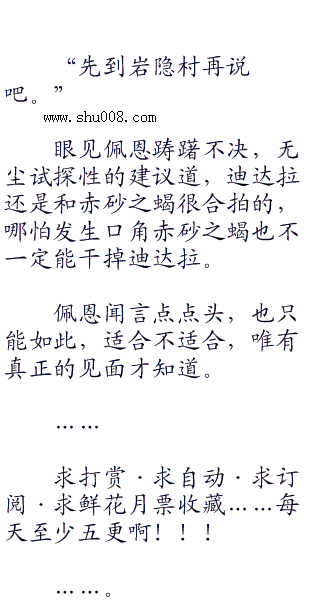 “先到岩隐村再说
吧。”
www.shu008.com
眼见佩恩踌躇不决，无
尘试探性的建议道，迪达拉
还是和赤砂之蝎很合拍的，
哪怕发生口角赤砂之蝎也不
一定能干掉迪达拉。
佩恩闻言点点头，也只
能如此，适合不适合，唯有
真正的见面才知道。
……
求打赏·求自动·求订
阅·求鲜花月票收藏……每
天至少五更啊！！！
……。